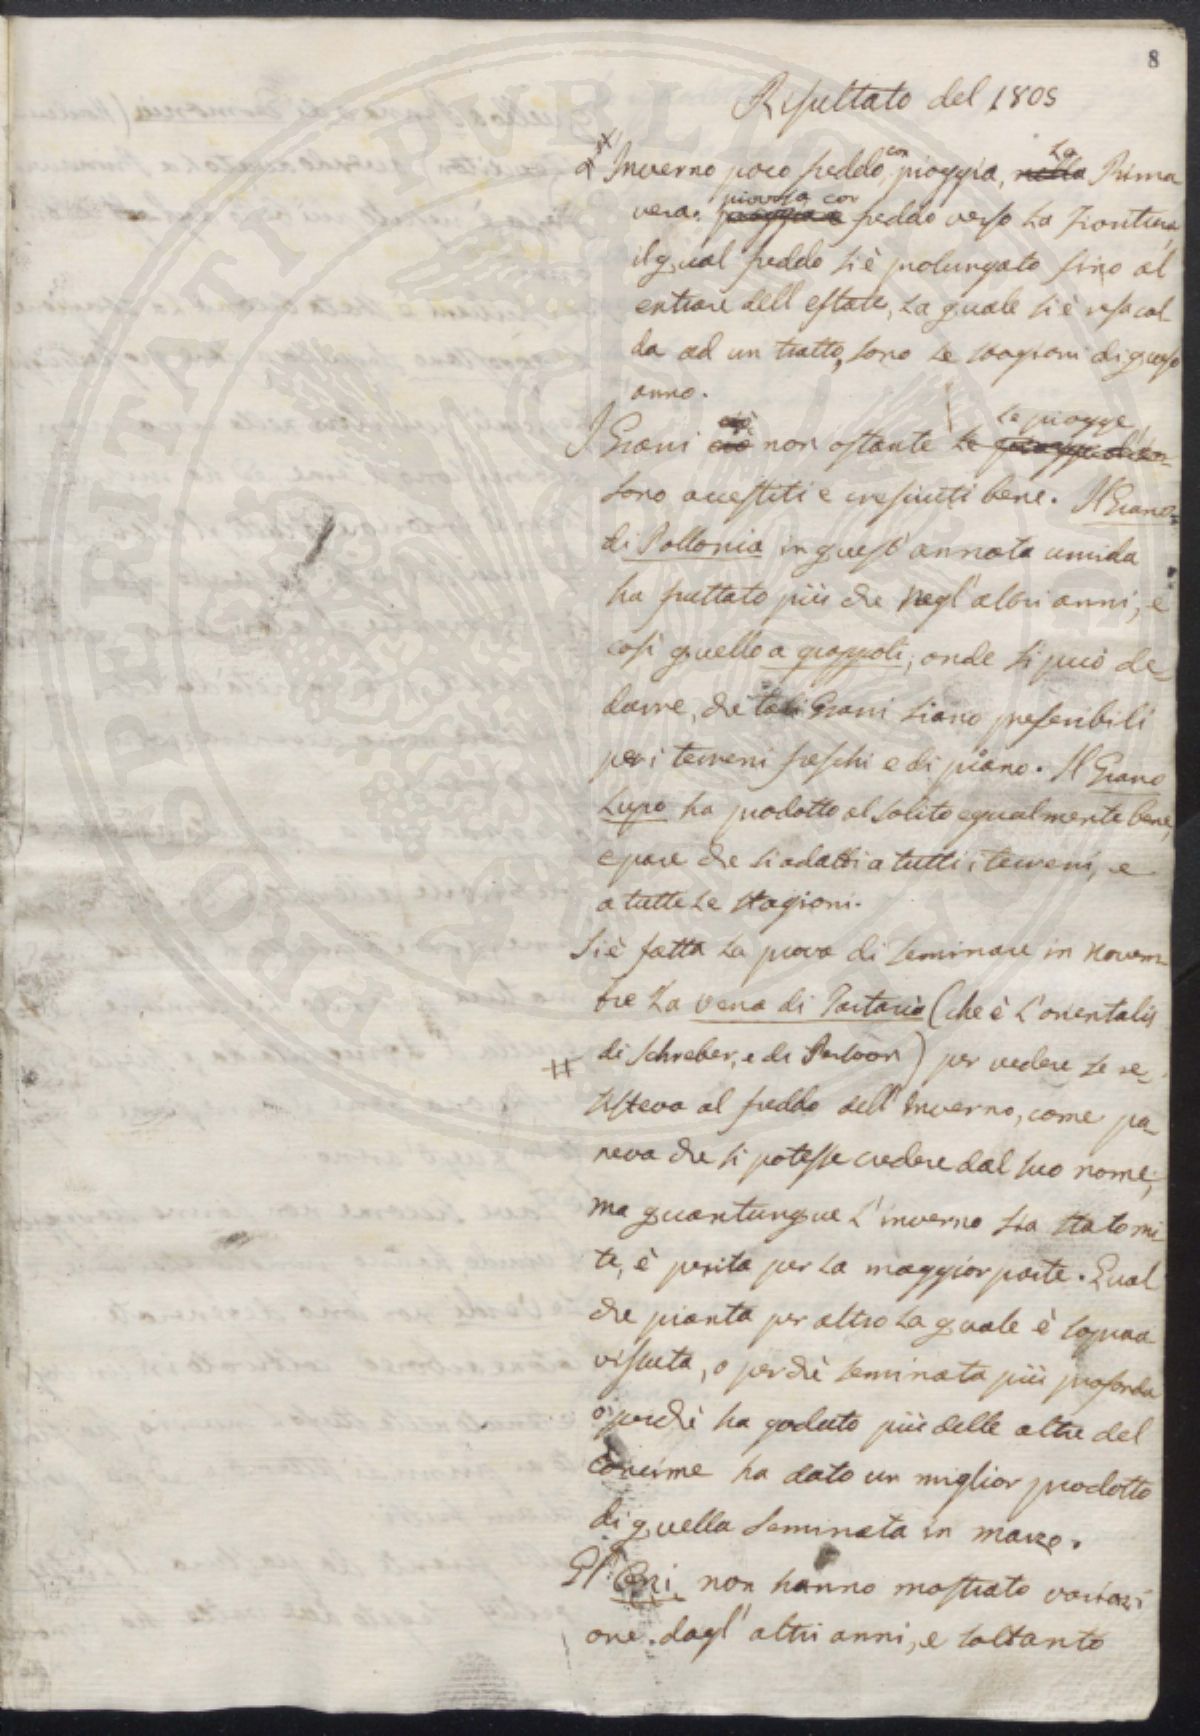 8
Risultato del 1805
L'Inverno poco freddo, con pioggia, nella La Prima
vera. pioggia e piovosa con freddo verso la Fioritura,
il qual freddo si è prolungato fino al
entrare dell estate, la quale si è resa cal-
da ad un tratto, sono le stagioni di questo
anno.
I Grani non ostante le piogge
sono accestiti e cresciuti bene. Il Grano
di Pollonia in quest'annata umida
ha fruttato più che negl'altri anni, e
così quello a grappoli; onde si può de-
durre, che tali Grani siano preferibili
per i terreni freschi e di piano. Il Grano
Lupo ha prodotto al solito egualmente bene,
e pare che si adatti a tutti i terreni, e
a tutte le stagioni.
Si è fatta la prova di seminare in Novem-
bre la vena di Tartaria (che è l'orientalis
di Schreber, e di ) per vedere se re-
sisteva al freddo dell'Inverno, come pa-
reva che si potesse credere dal suo nome;
ma quantunque l'inverno sia stato mi-
te, è perita per la maggior parte. Qual
che pianta per altro la quale è soprav
vissuta, o perchè seminata più profonda
o perchè ha goduto più delle altre del
concime ha dato un miglior prodotto
di quella seminata in marzo.
Gl'Orzi non hanno mostrato variazi
one dagl'altri anni, e soltanto
PROSPERITATI PUBLICAE AUGENDAE